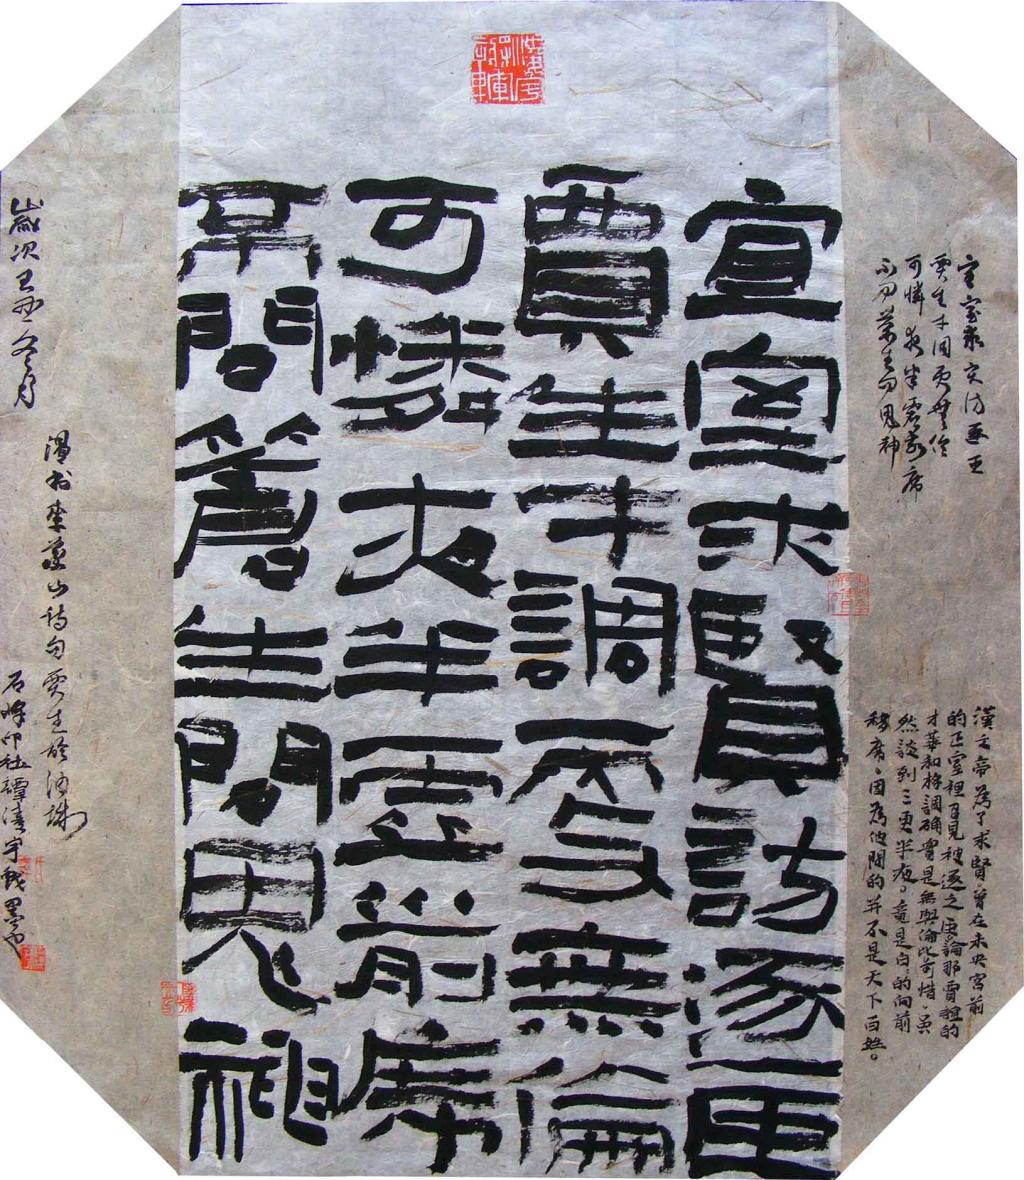 宣室求賢訪逐臣
賈生才調更無倫
可憐夜半虛前席
不問蒼生問鬼神
漢文帝為了求賢。曾在未央宮前
的正室裡召見被逐之臣。論那賈誼的
才華和格調确實是無與倫比。可惜。虽
然談到三更半夜。竟是白的向前
移席。因為他問的并不是天下百姓。
宣室求賢訪逐臣
賈生才調更無倫
可憐夜半虛前席
不問蒼生問鬼神
歲次冬月
書李義山詩句賈生於
石峰印社譚清宇戲墨也